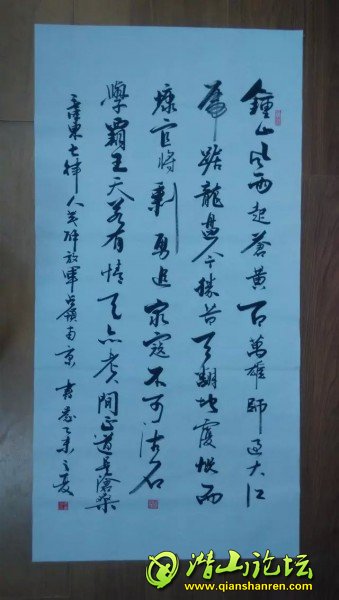 鍾山风雨起蒼黄百萬雄師过大江
虎踞龍盘今勝昔天翻地覆慨而
慷宜将剩勇追穷寇不可沽名
學霸王天若有情天亦老人间正道是滄桑
毛泽東七律人民解放軍占領南京 乙未之夏
潜山论坛
www.qianshanren.com